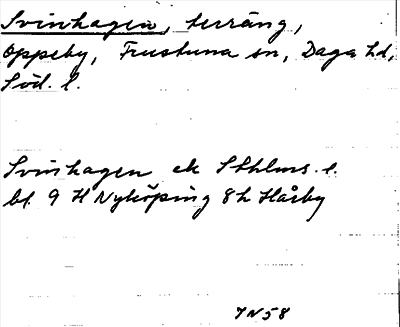 Svinhagen, terräng,
Oppeby, Frustuna sn, Daga hd,
Söd. l.
Svinhagen ek Sthlms. l.
bl. 9 H Nyköping 8h Håsby
IN58